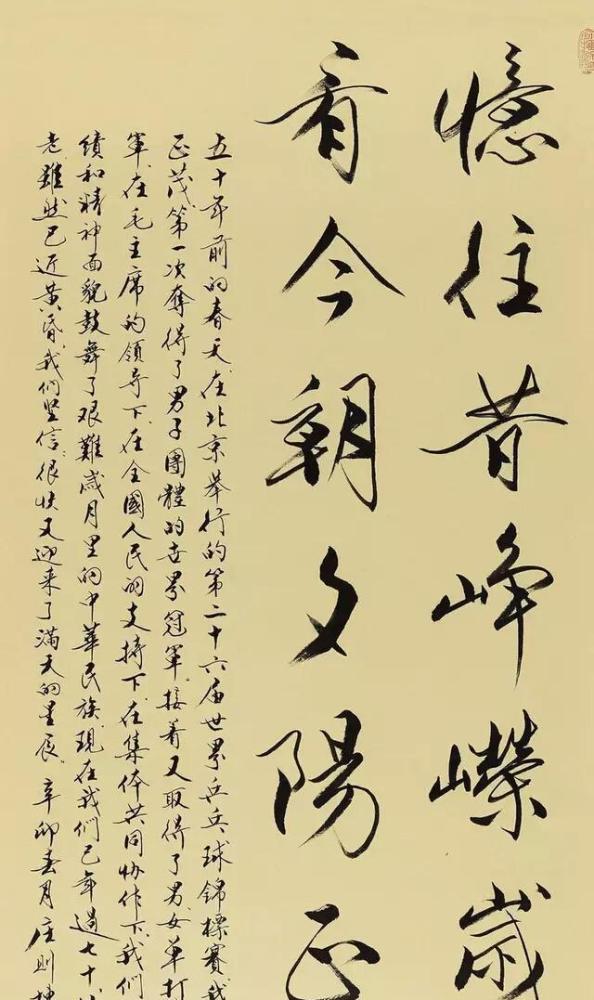 憶往昔峥嶸歲
看今朝夕陽正
五十年前的春天在北京举行的第二十六届世界乒乓球錦標賽我
正茂第一次奪得了男子團體的世界冠軍接着又取得了男女单打
軍在毛主席的領导下在全國人民的支持下在集体共同协作下我們
績和精神面貌鼓舞了艰難歲月里的中華民族現在我們已年過七十
老雖然已近黄昏我們坚信很快又迎来了满天的星辰 辛卯春月庄則棟